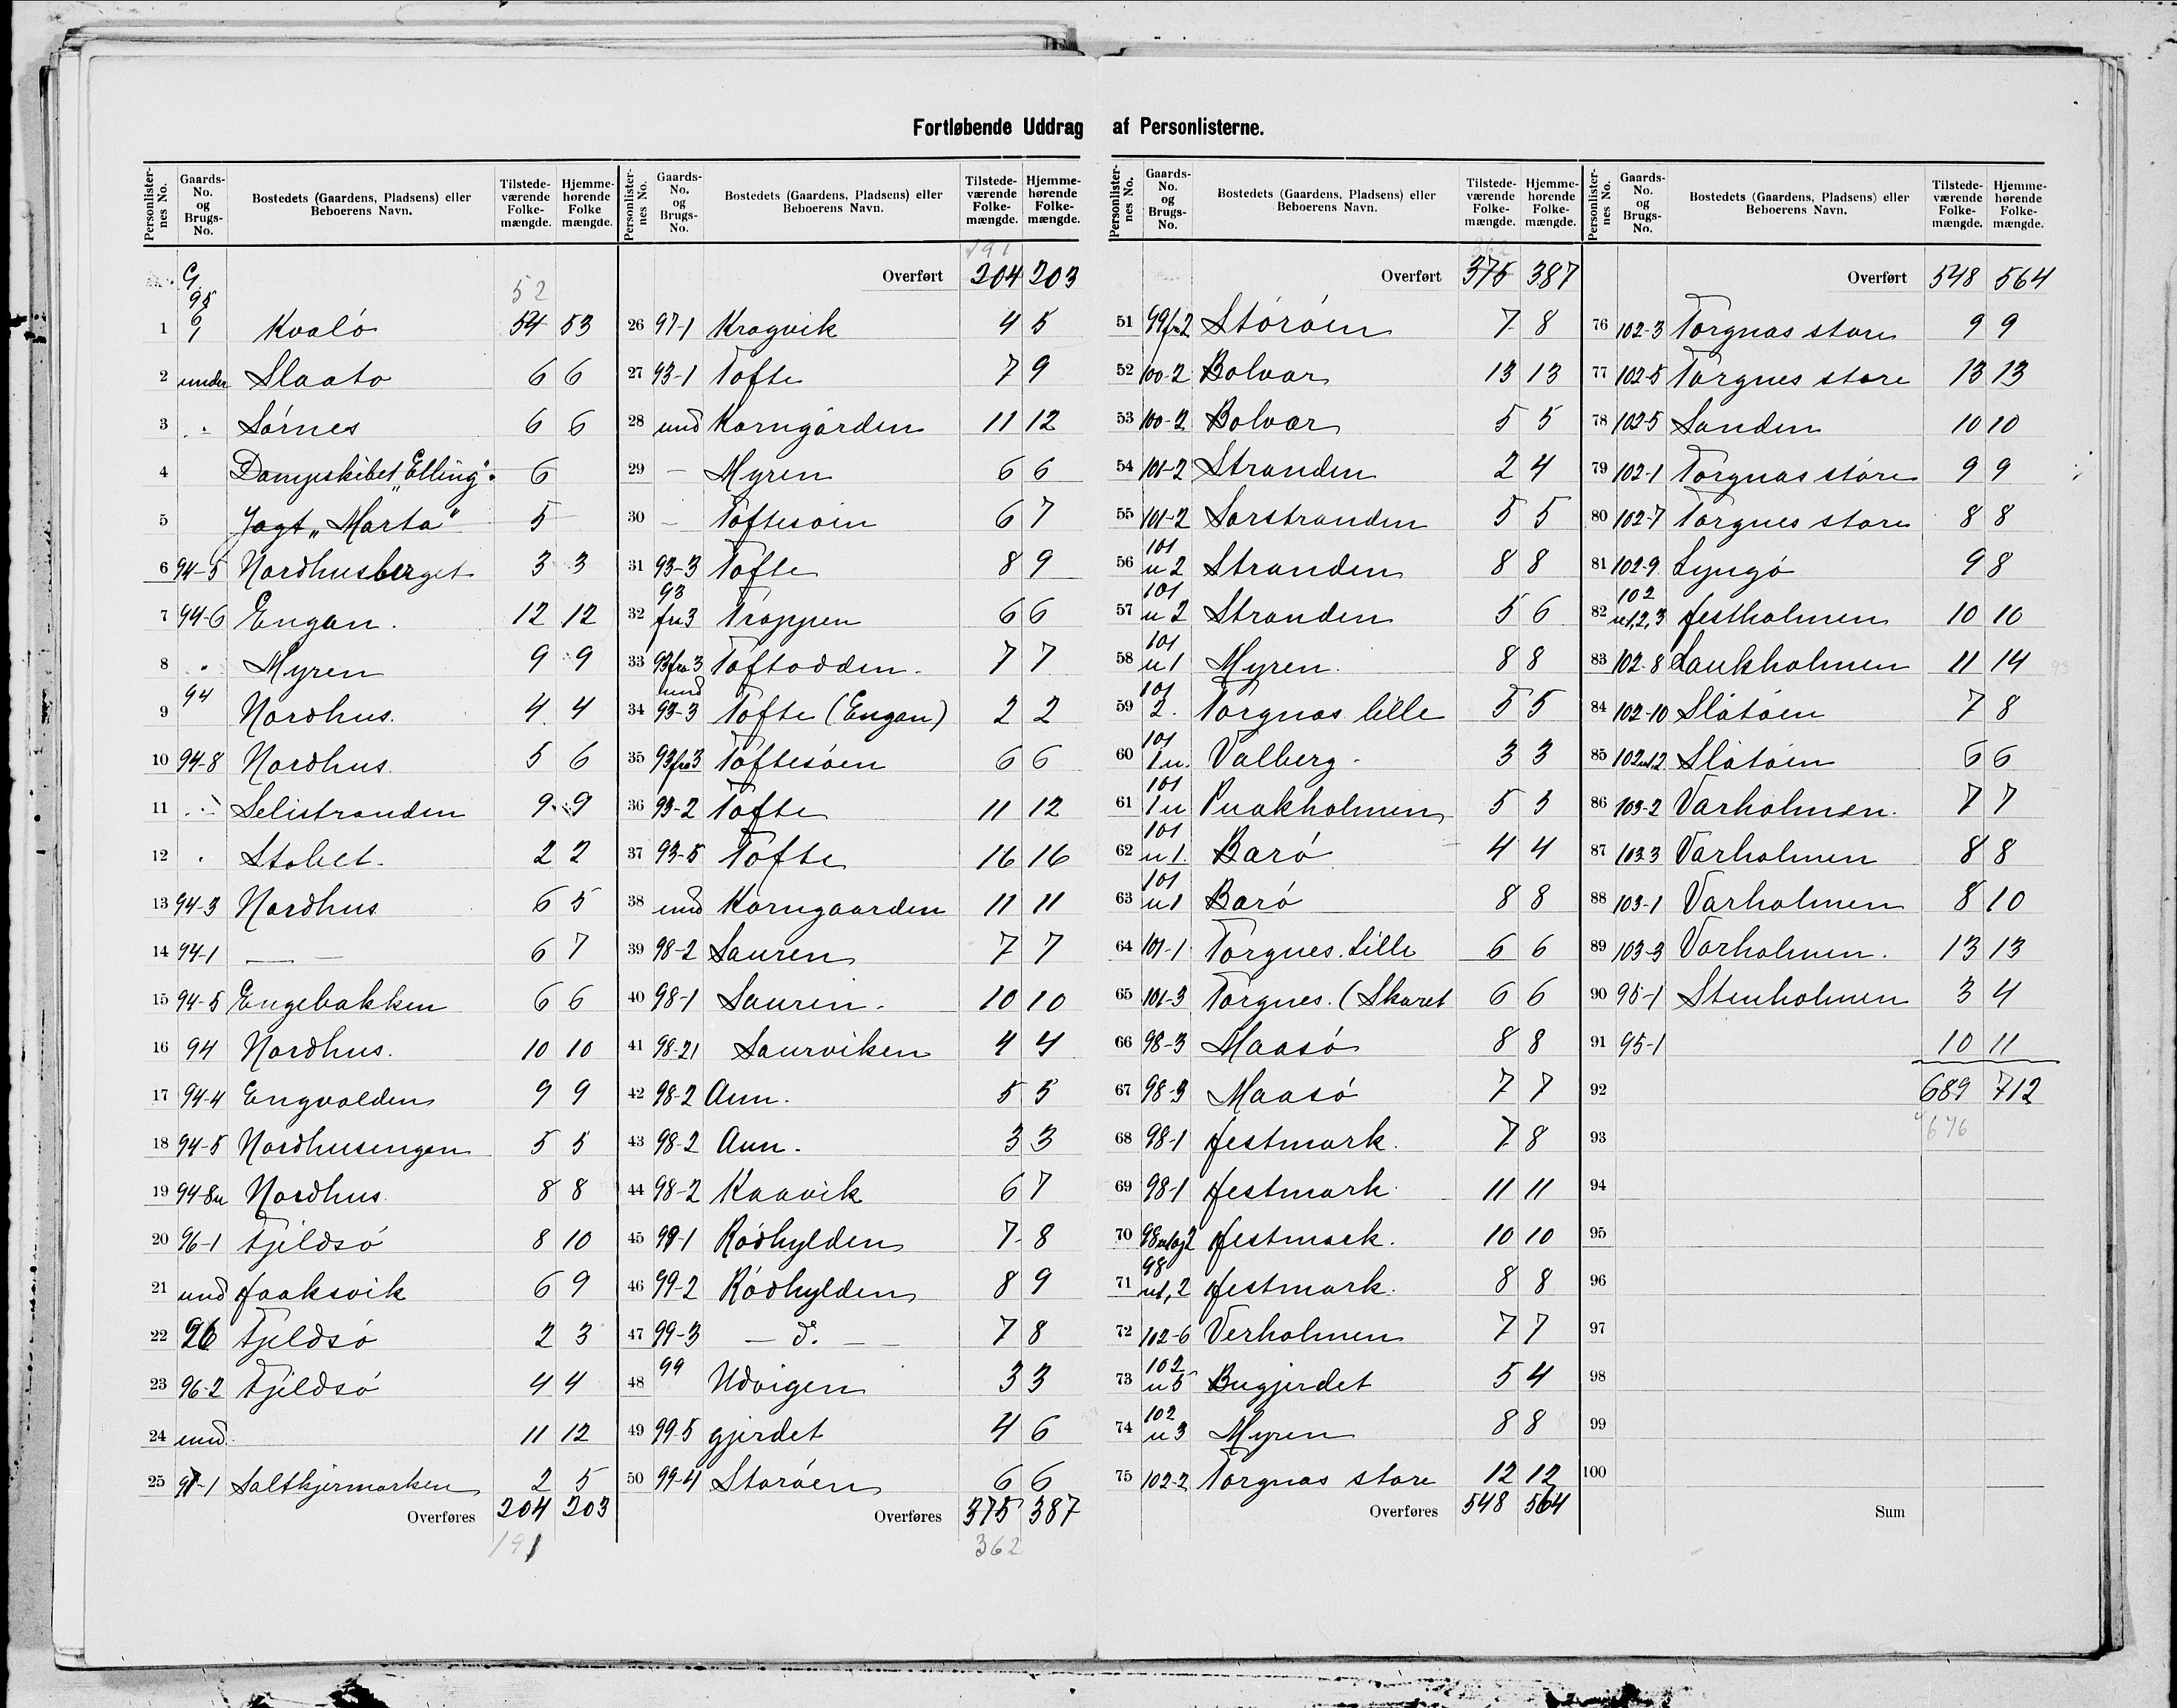 Fortløbende Uddrag af Personlisterne.
Personlister-nes No. Gaards-No. og Brugs-No. Bostedets (Gaardens, Pladsens) eller Beboerens Navn. Tilstede-værende Folke-mængde. Hjemme-hørende Folke mængde.
G.
95 52
1 Kvalö 54 53
2 under Slaato 6 6
3 " Sørnes 6 6
4 Dampskibet "Elling". 6
5 Jagt "Marta" 5
6 94-5 Nordhusberget 3 3
7 94-6 Engan. 12 12
8 " Myren 9 9
9 94 Nordhus. 4 4
10 94-8 Nordhus 5 6
11 " Selistranden 9 9
12 " Stobet. 2 2
13 94-3 Nordhus 6 5
14 94-1 — — 6 7
15 94-5 Engebakken 6 6
16 94 Nordhus. 10 10
17 94-4 Engvolden 9 9
18 94-5 Nordhusengen 5 5
19 94-8u Nordhus. 8 8
20 96-1 Fjeldsö 8 10
21 und Haaksvik 6 9
22 96 Fjeldsö 2 3
23 96-2 Fjeldsö 4 4
24 und. 11 12
25 97-1 Saltkjermarken 2 5
Overføres 204 203
191
Personlister-nes No. Gaards-No. og Brugs-No. Bostedets (Gaardens, Pladsens) eller Beboerens Navn. Tilstede-værende Folke-mængde. Hjemme-hørende Folke-mængde.
191
Overført 204 203
26 97-1 Kragvik 4 5
27 93-1 Tofte 7 9
28 und Korngården 11 12
29 — Myren 6 6
30 — Toftesöen 6 7
31 93-3 Tofte 8 9
32 93 fra 3 Trappen 6 6
33 93 fra 3 Toftodden. 7 7
34 und 93-3 Tofte (Engan) 2 2
35 93 fra 3 Toftesöen 6 6
36 93-2 Tofte 11 12
37 93-5 Tofte 16 16
38 und Korngaarden 11 11
39 98-2 Sauren 7 7
40 98-1 Sauren. 10 10
41 98-21 Saurviken 4 4
42 98-2 Aun. 5 5
43 98-2 Aun. 3 3
44 98-2 Kaavik 6 7
45 99-1 Rödhylden 7 8
46 99-2 Rödhylden 8 9
47 99-3 — d. — 7 8
48 99 Udvigen 3 3
49 99-5 gjerdet 4 6
50 99-4 Storöen 6 6
Overføres 375 387
362
Personlister-nes No. Gaards-No. og Brugs-No. Bostedets (Gaardens, Pladsens) eller Beboerens Navn. Tilstede-værende Folke-mængde. Hjemme-hørende Folke-mængde.
362
Overført 375 387
51 99 2 Störöen 7 8
52 100-2 Bolvar 13 13
53 100-2 Bolvar 5 5
54 101-2 Stranden 2 4
55 101-2 Sorstranden 5 5
56 101 u 2 Stranden 8 8
57 101 u 2 Stranden 5 6
58 101 u 1 Myren. 8 8
59 101 2. Torgnas lille 5 5
60 101 1 u. Valberg. 3 3
61 101 1 u Puakholmen 5 5
62 101 u 1. Barö 4 4
63 101 u 1 Barö 8 8
64 101-1 Torgnes. Lille 6 6
65 101-3 Torgnes. (Skaret 6 6
66 98-3 Maasö 8 8
67 98-3 Maasö 7 7
68 98-1 Hestmark. 7 8
69 98-1 Hestmark. 11 11
70 98 u 1 og 2 Hestmark. 10 10
71 98 u 1, 2 Hestmark. 8 8
72 102-6 Verholmen 7 7
73 102 u 5 Bugjerdet 5 4
74 102 u 3 Myren 8 8
75 102-2 Torgnas store 12 12
Overføres 548 564
Personlister-nes No. Gaards-No. og Brugs-No. Bostedets (Gaardens, Pladsens) eller Beboerens Navn. Tilstede-værende Folke-mængde. Hjemme-hørende Folke-mængde.
Overført 548 564
76 102-3 Torgnas store 9 9
77 102-5 Torgnes store 13 13
78 102-5 Sanden 10 10
79 102-1 Torgnas store 9 9
80 102-7 Torgnes store 8 8
81 102-9 Lyngö 9 8
82 102 u 1, 2, 3 Hestholmen 10 10
83 102-8 Laukholmen 11 14
84 102-10 Slåtöen 7 8
85 102 u 1, 2 Slåtöen 6 6
86 103-2 Varholmen. 7 7
87 103-3 Varholmen 8 8
88 103-1 Varholmen 8 10
89 103-3 Varholmen. 13 13
90 95-1 Stenholmen 3 4
91 95-1 10 11
92 689 712
93 676
94
95
96
97
98
99
100
Sum